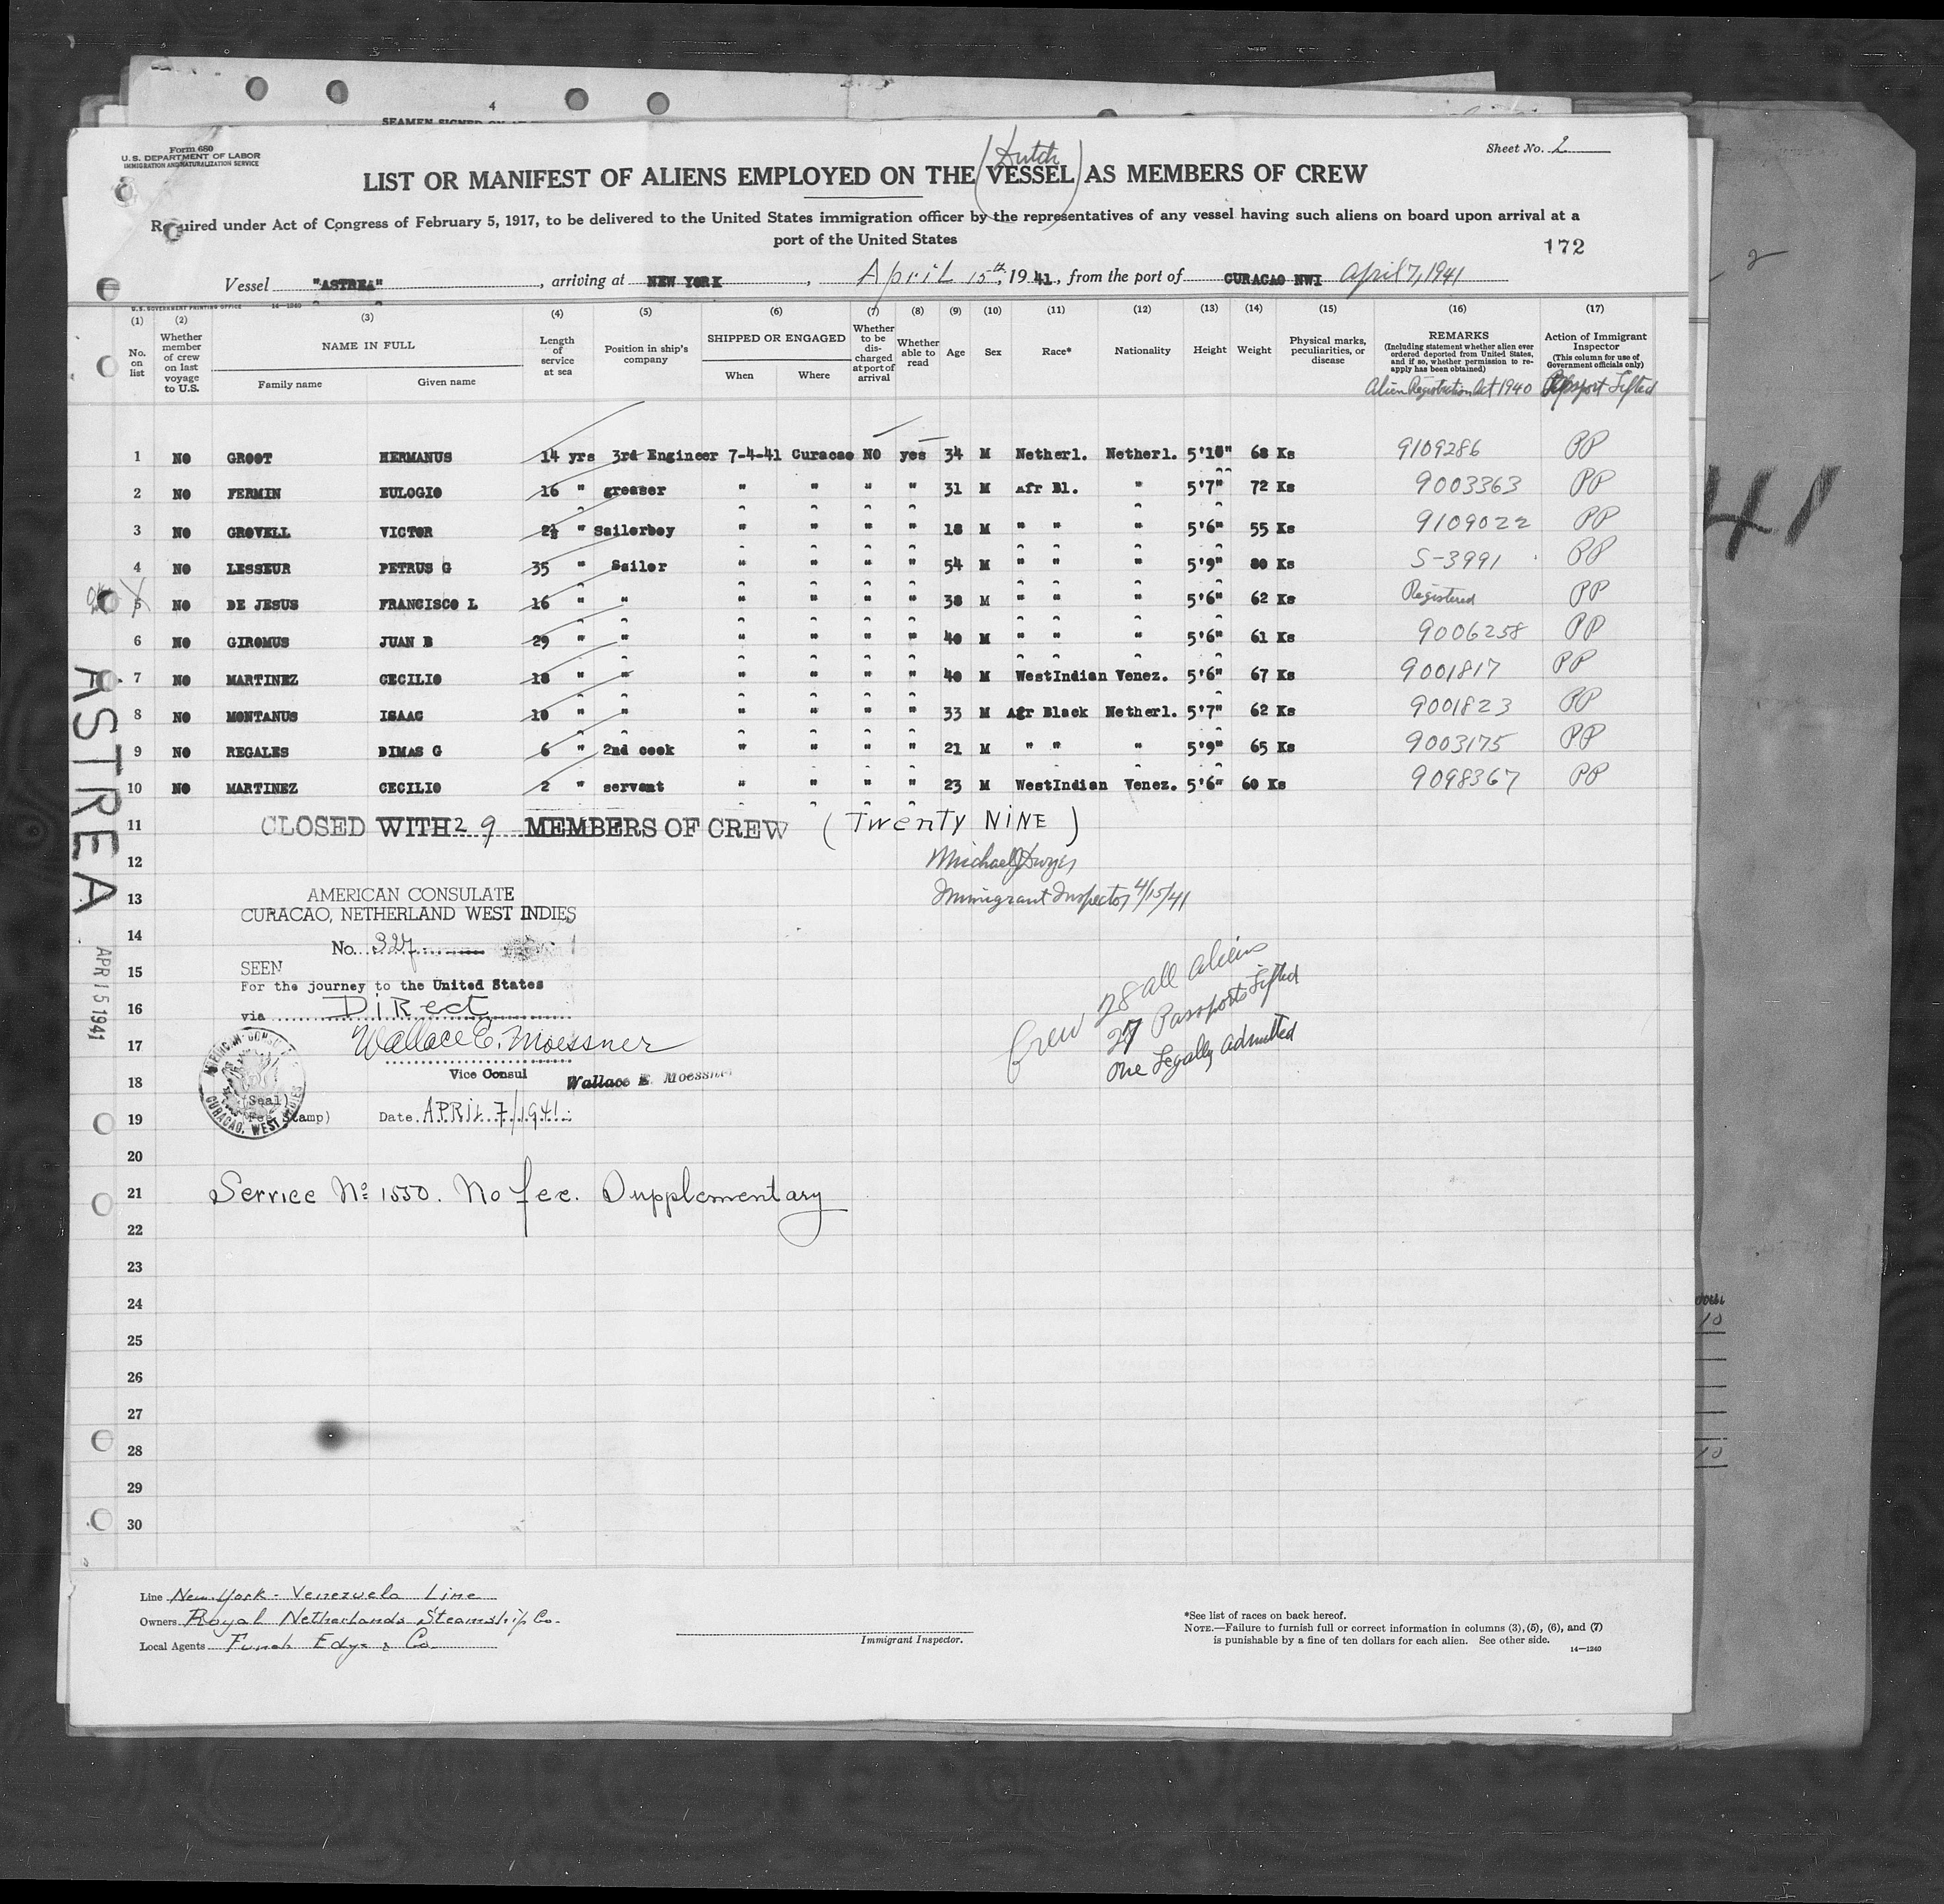 4
SEAMEN SIGNED ON AT
Form 680
U.S. DEPARTMENT OF LABOR
IMMIGRATION AND NATURALIZATION SERVICE
Sheet No. 2
(Dutch
LIST OR MANIFEST OF ALIENS EMPLOYED ON THE (VESSEL) AS MEMBERS OF CREW
Required under Act of Congress of February 5, 1917, to be delivered to the United States immigration officer by the representatives of any vessel having such aliens on board upon arrival at a
port of the United States
172
Vessel "ASTREA", arriving at NEW YORK, April 15th, 1941, from the port of CURACAO NWI April 7, 1941
U.S. GOVERNMENT PRINTING OFFICE 14—1240
(1) (2) (3) (4) (5) (6) (7) (8) (9) (10) (11) (12) (13) (14) (15) (16) (17)
No. on list
Whether member of crew on last voyage to U.S.
NAME IN FULL
Family name Given name
Length of service at sea
Position in ship's company
SHIPPED OR ENGAGED
When Where
Whether to be discharged at port of arrival
Whether able to read
Age
Sex
Race*
Nationality
Height
Weight
Physical marks, peculiarities, or disease
REMARKS
(Including statement whether alien ever ordered deported from United States, and if so, whether permission to reapply has been obtained)
Alien Registration Act 1940
Action of Immigrant Inspector
(This column for use of Government officials only)
Passport Lifted
1 NO GROOT HERMANUS 14 yrs 3rd Engineer 7-4-41 Curacao NO yes 34 M Netherl. Netherl. 5'10" 68 Ks 9109286 PP
2 NO FERMIN EULOGIO 16 " greaser " " " " 31 M Afr Bl. " 5'7" 72 Ks 9003363 PP
3 NO GROVELL VICTOR 2½ " Sailorboy " " " " 18 M " " " 5'6" 55 Ks 9109022 PP
4 NO LESSEUR PETRUS G 35 " Sailor " " " " 54 M " " " 5'9" 80 Ks S-3991 PP
5 NO DE JESUS FRANCISCO L 16 " " " " " " 38 M " " " 5'6" 62 Ks Registered PP
6 NO GIROMUS JUAN B 29 " " " " " " 40 M " " " 5'6" 61 Ks 9006258 PP
7 NO MARTINEZ CECILIO 18 " " " " " " 40 M WestIndian Venez. 5'6" 67 Ks 9001817 PP
8 NO MONTANUS ISAAC 10 " " " " " " 33 M Afr Black Netherl. 5'7" 62 Ks 9001823 PP
9 NO REGALES DIMAS G 6 " 2nd cook " " " " 21 M " " " 5'9" 65 Ks 9003175 PP
10 NO MARTINEZ CECILIO 2 " servant " " " " 23 M WestIndian Venez. 5'6" 60 Ks 9098367 PP
11 CLOSED WITH 29 MEMBERS OF CREW (TWENTY NINE)
12 Michael J Dwyer
13 Immigrant Inspector 4/15/41
AMERICAN CONSULATE
CURACAO, NETHERLAND WEST INDIES
14
No. 327
15
SEEN
For the journey to the United States
16
via DIRect
17
Wallace E. Moessner
Vice Consul Wallace E. Moessner
18
AMERICAN CONSULATE CURACAO, WEST INDIES
(Seal)
Fee Stamp)
19
Date APRIL 7/1941.
Crew 28 all aliens
27 Passports Lifted
one Legally admitted
20
21 Service No 1550. No fee. Supplementary
22
23
24
25
26
27
28
29
30
ASTREA
APR 15 1941
41
2
10
10
Line New York - Venezuela Line
Owners Royal Netherlands Steamship Co.
Local Agents Funch Edye & Co.
Immigrant Inspector.
*See list of races on back hereof.
NOTE.—Failure to furnish full or correct information in columns (3), (5), (6), and (7)
is punishable by a fine of ten dollars for each alien. See other side.
14—1240